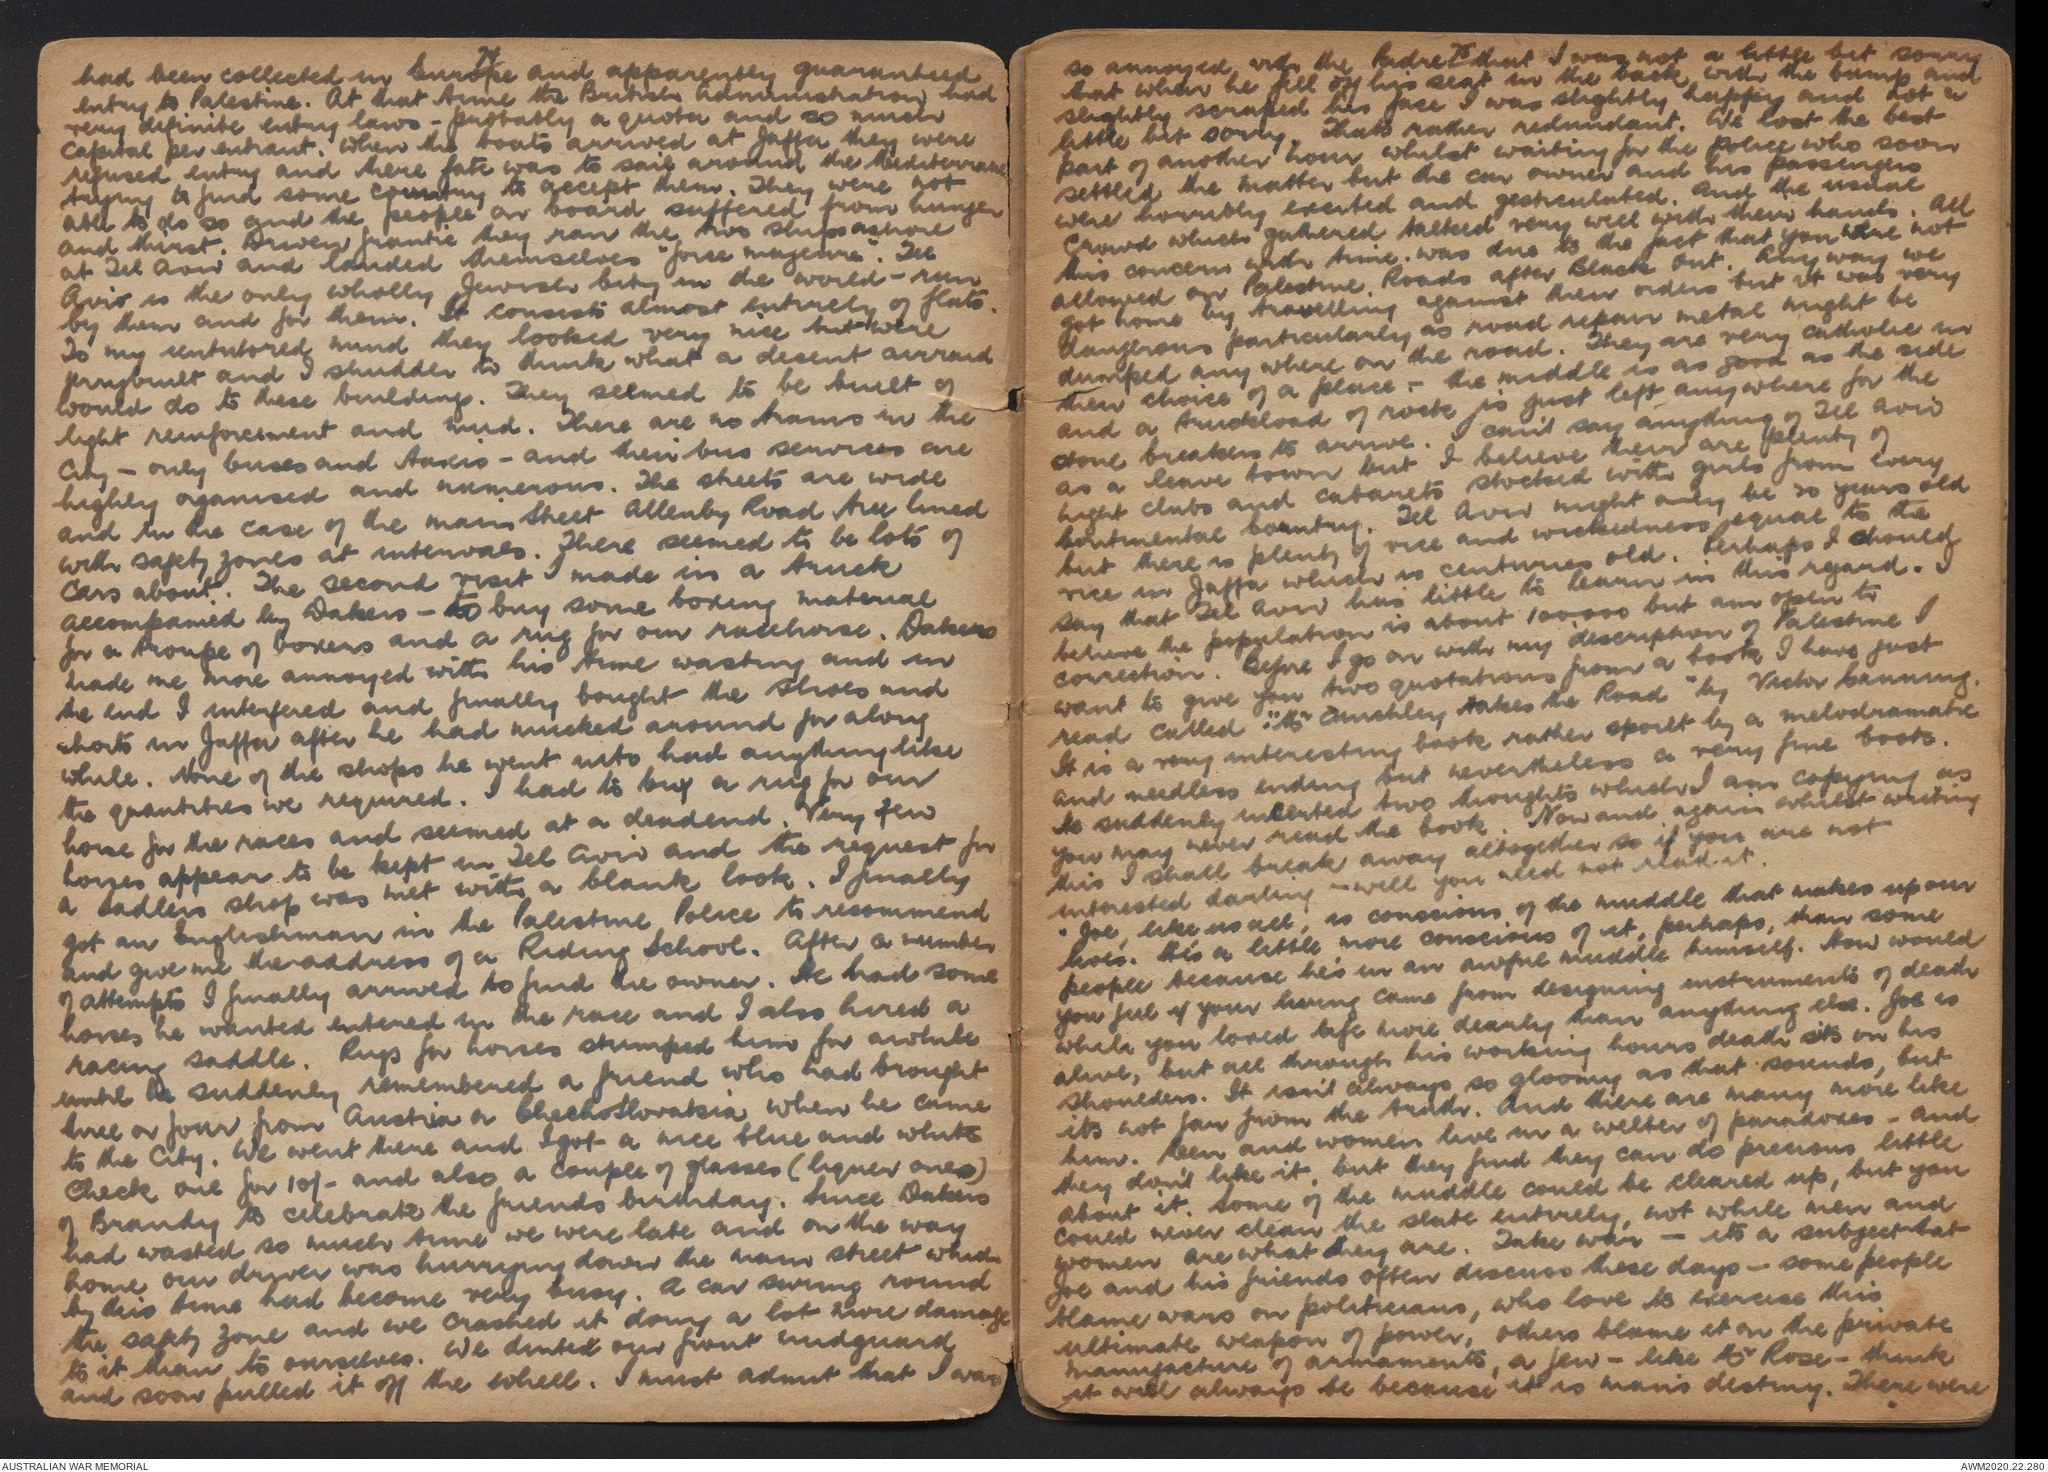 74
had been collected in Europe and apparently guaranteed
entry to Palestine. At that time the British Administration had
very definite entry laws - probably a quota and so much
capital per entrant. When the boats arrived at Jaffa they were
refused entry and there fate was to sail around the Mediterranean
trying to find some country to accept them. They were not
able to do so and the people on board suffered from hunger
and thirst. Driven frantic they ran the two ships ashore
at Tel Aviv and landed themselves "force majeure". Tel
Aviv is the only wholly Jewish City in the world - run
by them and for them. It consists almost entirely of flats.
To my untutored mind they looked very nice but were
jerrybuilt and I shudder to think what a decent air raid
would do to these buildings. They seemed to be built of
light reinforcement and mud. There are no trams in the
City - only buses and taxis - and their bus services are
highly oganised and numerous. The streets are wide
and in the case of the main street Allenby Road tree lined
with safety zones at intervals. There seemed to be lots of
cars about. The second visit I made in a truck
accompanied by Dakers - to buy some boxing material
for a troupe of boxers and a rug for our racehorse. Dakers
made me more annoyed with his time wasting and in
the end I interfered and finally bought the shoes and
shorts in Jaffa after he had mucked around for along
while. None of the shops he went into had anything like
the quantities we required. I had to buy a rug for our
horse for the races and seemed at a deadend. Very few
horses appear to be kept in Tel Aviv and the request for
a sadlers shop was met with a blank look. I finally
got an Englishman in the Palestine Police to recommend
and give me the address of a Riding School. After a number
of attempts I finally arrived to find the owner. He had some
horses he wanted entered in the race and I also hired a
racing saddle. Rugs for horses stumped him for awhile
until he suddenly remembered a friend who had brought
three or four from Austria or Checkoslovakia when he came
to the City. We went there and I got a nice blue and white
check one for 10/- and also a couple of glasses (liquer ones)
of Brandy to celebrate the friends birthday. Since Dakers
had wasted so much time we were late and on the way
home our driver was hurrying down the main street which
by this time had become very busy. A car swung round
the safety zone and we crashed it doing a lot more damage
to it than to ourselves. We dinted our front mudguard
and soon pulled it off the wheel. I must admit that I was
75
so annoyed with the Padre that I was not a little bit sorry
that when he fell off his seat in the back with the bump and
slightly scraped his face I was slightly happy and not a
little bit sorry. Thats rather redundant. We lost the best
part of another hour whilst waiting for the police who soon
settled the matter but the car owner and his passengers
were horribly excited and gesticulated. And the usual
crowd which gathered talked very well with their hands. All
this concern with time was due to the fact that you were not
allowed on Palestine Roads after Black out. Any way we
got home by travelling against their orders but it was very
dangerous particularly as road repair metal might be
dumped any where on the road. They are very catholic in
their choice of a place - the middle is as good as the side
and a truckload of rock is just left anywhere for the
stone breakers to arrive. I can't say anything of Tel Aviv
as a leave town but I believe their are plenty of
night clubs and cabarets stocked with girls from every
continental country. Tel Aviv might only be 20 years old
but there is plenty of vice and wickedness equal to the
vice in Jaffa which is centuries old. Perhaps I should
say that Tel Aviv has little to learn in this regard. I
believe the population is about 100,000 but am open to
correction. Before I go on with my description of Palestine I
want to give you two quotations from a book I have just
read called "Mr Finchley takes the Road" by Victor Canning.
It is a very interesting book rather spoilt by a melodramatic
and needless ending but nevertheless a very fine book.
He suddenly inserted two thoughts which I am copying as
you may never read the book. Now and again whilst writing
this I shall break away altogether so if you are not
interested darling - well you need not read it.
"Joe, like us all, is conscious of the muddle that makes up our
lives. He's a little more conscious of it, perhaps, than some
people because he's in an awful muddle himself. How would
you feel if your living came from designing instruments of death
while you loved life more dearly than anything else. Joe is
alive, but all through his working hours death sits on his
shoulders. It isn't always so gloomy as that sounds, but
its not far from the truth. And there are many more like
him. Men and women live in a welter of paradoxes - and
they don't like it, but they find they can do precious little
about it. Some of the muddle could be cleared up, but you
could never clean the slate entirely, not while men and
women are what they are. Take war - its a subject that
Joe and his friends often discuss these days - some people
blame wars on politicians, who love to exercise this
ultimate weapon of power, others blame it on the private
manufacture of armaments, a few - like Mr Rose - think
it will always be because it is man's destiny. There were
AUSTRALIAN WAR MEMORIAL
AWM2020.22.280